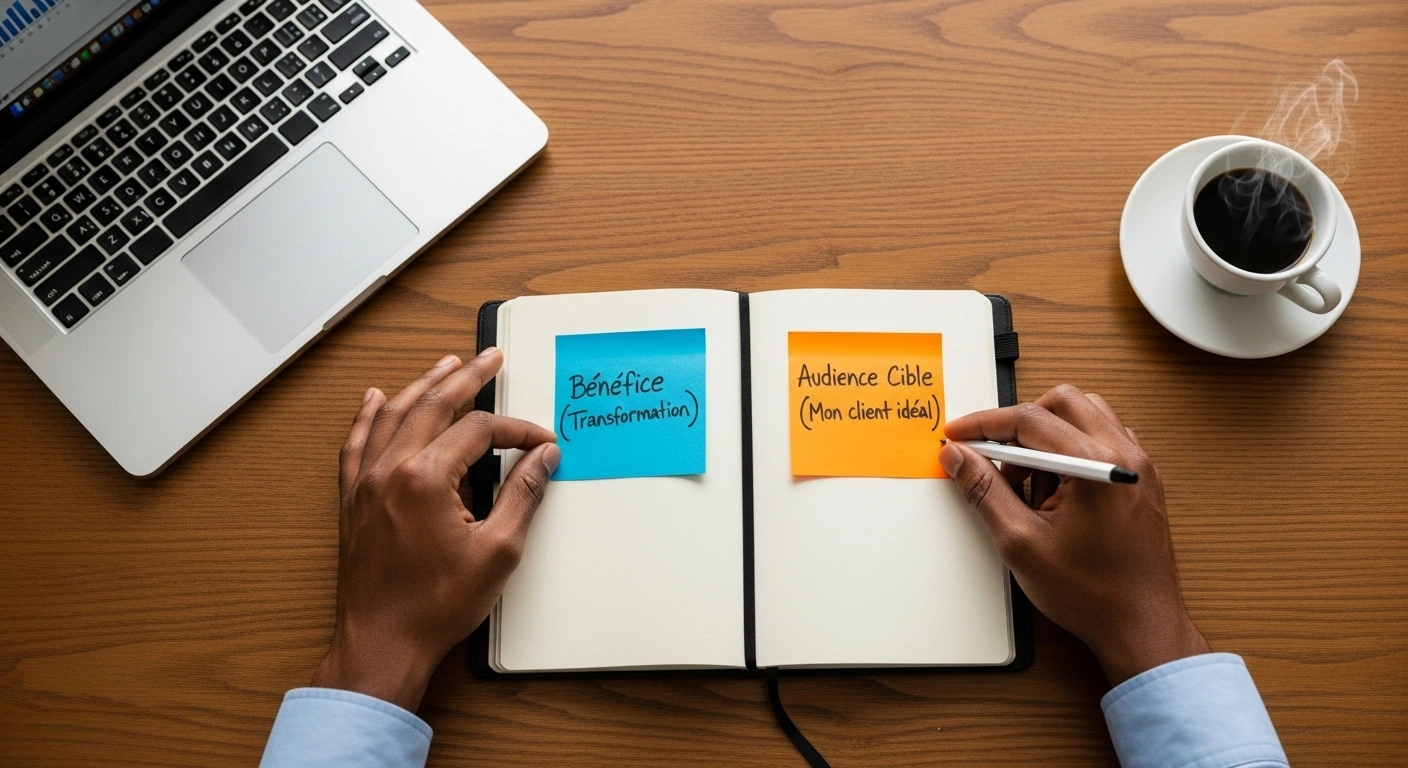 Bénéfice
(Transformation)
Audience Cible
(Mon client idéal)